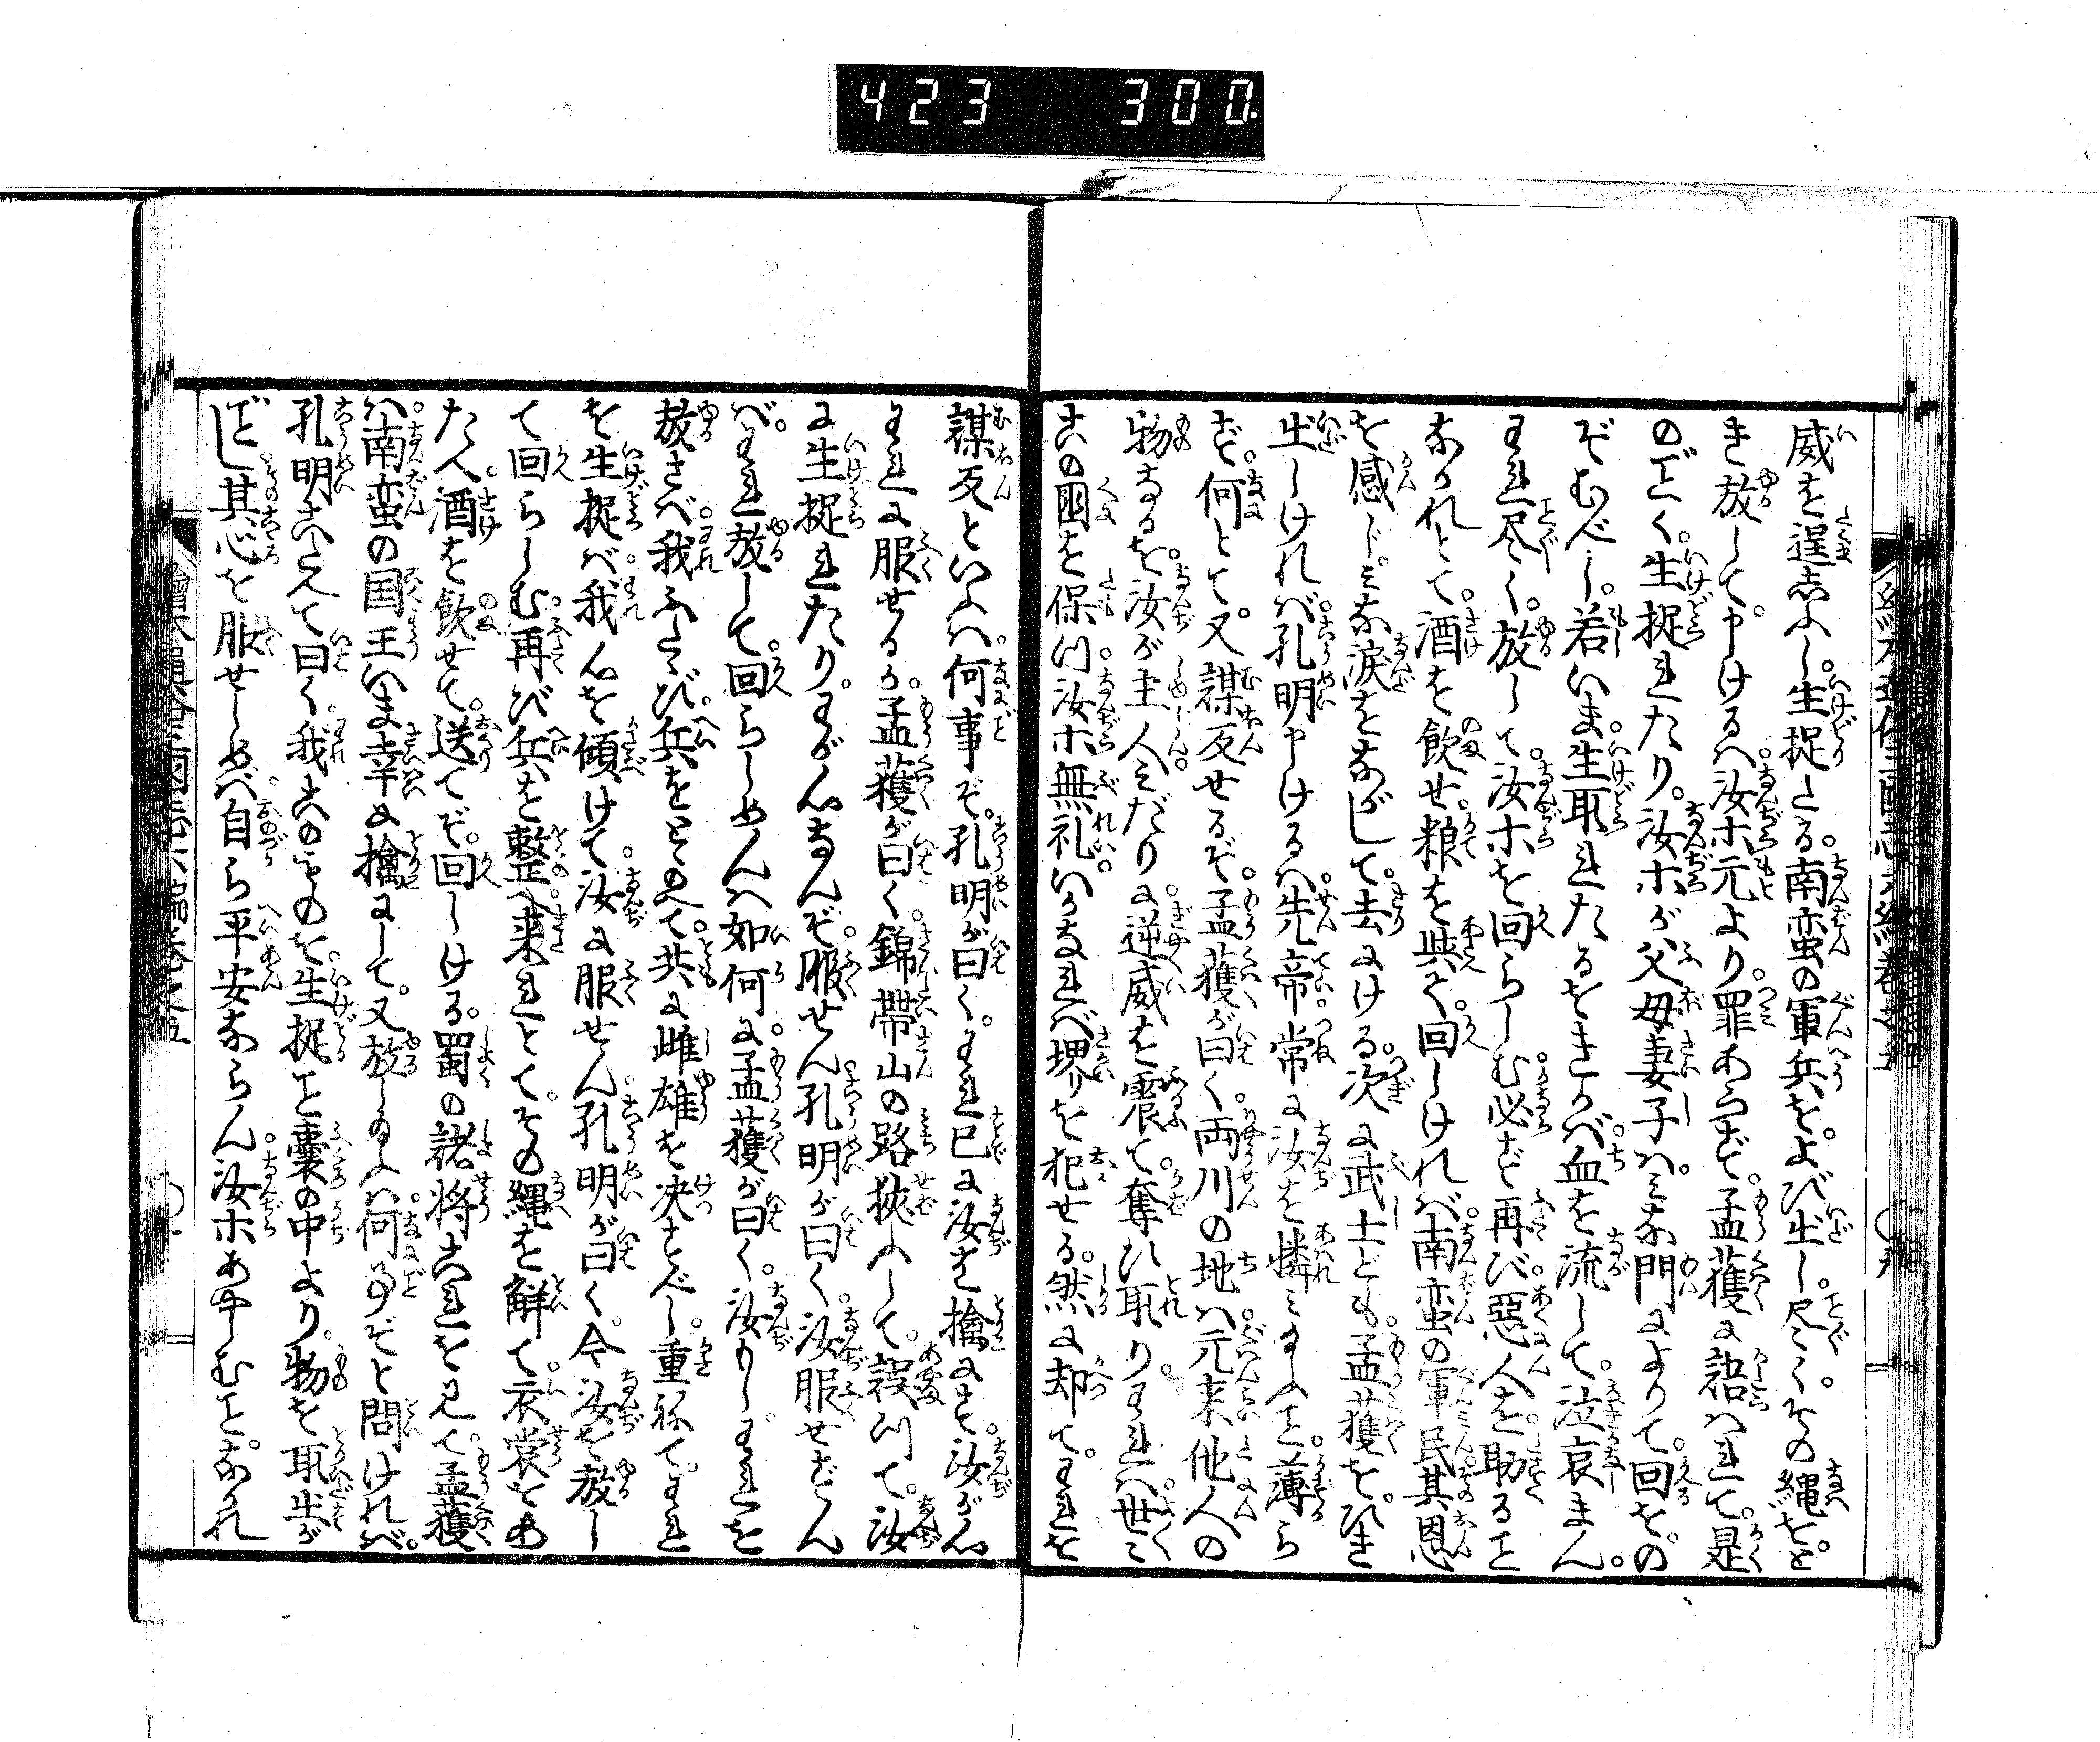 423 300
威を逞しふし。生捉たる。南蛮の軍兵を。よび出し。尽く。その縄をと
き放して申けるハ汝ホ元より。罪あらず。孟獲に語ハれて。是
のごとく。生捉れたり。汝ホが父母妻子ハ。ミな門によりて。回を。の
ぞむべし。若いま。生取れたるをきかバ血を流して。泣哀まん。
われ尽く。放して。汝ホを回らしむ。必ず再び悪人を助ること
なかれとて。酒を飲せ。粮を与へ。回しけれバ。南蛮の軍民其恩
を感じ。ミな涙をながして。去にける。次に武士ども。孟獲を。ひき
出しけれバ。孔明申けるハ。先帝常に汝を憐ミ玉ふこと。薄ら
ず。何とて。又謀反せるぞ。孟獲が曰く。両川の地ハ。元来他人の
物なるを。汝が主人ミだりに。逆威を震て。奪ひ取り。われハ世〻
この国を保つ。汝ホ無礼。いかなれバ堺りを犯せる。然に却て。われを
謀反といふハ。何事ぞ。孔明が曰く。われ已に汝を擒にす。汝が心
われに服せるか。孟獲が曰く。錦帯山の路狭ふして。誤つて。汝
に生捉れたり。わが心なんぞ。服せん。孔明が曰く。汝服せずん
バ。われ放して。回らしめんハ如何に。孟獲が曰く。汝もし。われを
放さバ。我ふたゝび。兵をとゝのへて。共に雌雄を決すべし。重ねて。われ
を生捉バ。我心を傾けて。汝に服せん。孔明が曰く。今汝を放し
て回らしむ。再び兵を整へ来れとて。その縄を解て。衣裳をあ
たへ。酒を飲せて。送てぞ。回しける。蜀の諸将これを見て。孟獲
ハ。南蛮の国王いま幸に擒にして。又放し玉ふハ。何事ぞと問けれバ。
孔明こたへて曰く。我このものを。生捉こと嚢の中より。物を取出が
ごとし。其心を服せしめバ。自ら平安ならん。汝ホあやしむこと。なかれ